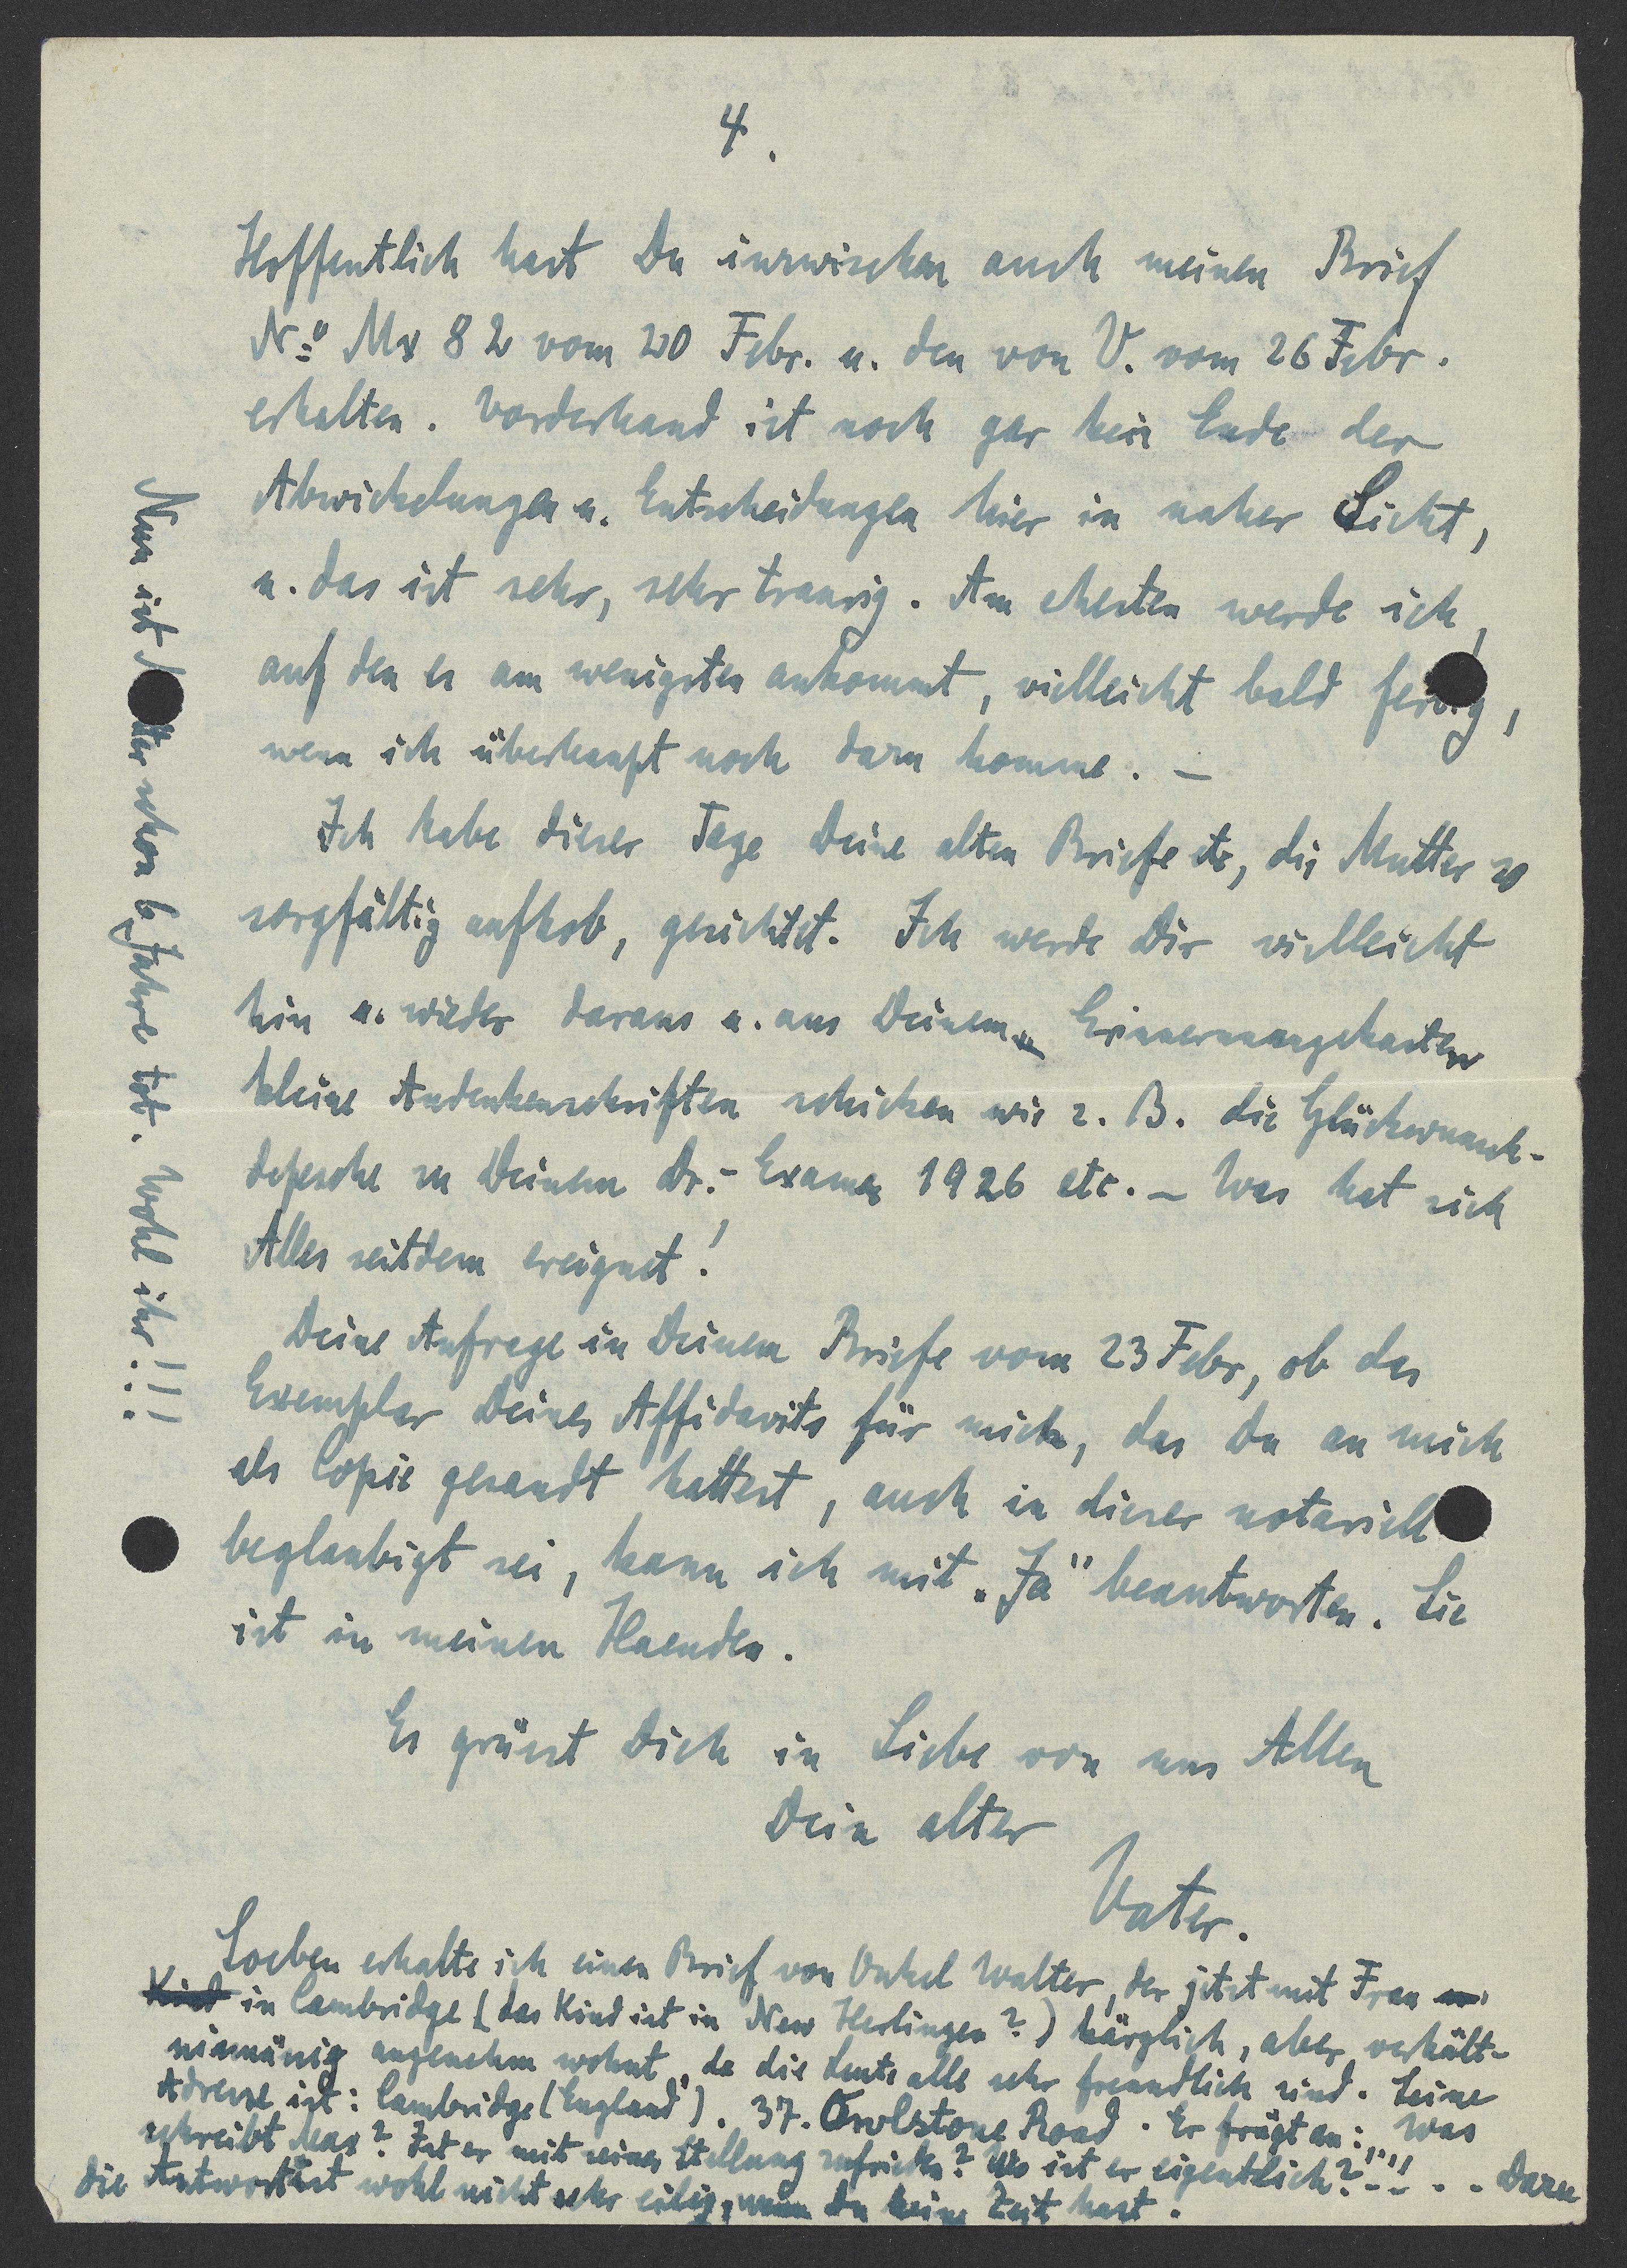 4.
Hoffentlich hast Du inzwischen auch meinen Brief
No Mx 82 vom 20 Febr. u. den von V. vom 26 Febr.
erhalten. Vorderhand ist noch gar kein Ende der
Abwickelungen u. Entscheidungen hier in naher Sicht,
u. das ist sehr, sehr traurig. Am ehesten werde ich,
auf den es am wenigsten ankommt, vielleicht bald fertig,
wenn ich überhaupt noch dazu komme. –
Ich habe dieser Tage Deine alten Briefe etc, die Mutter so
sorgfältig aufhob, gesichtet. Ich werde Dir vielleicht
hin u. wieder daraus u. aus Deinem Erinnerungskasten
kleine Andenkenschriften schicken wie z. B. die Glückwunsch-
depesche zu Deinem Dr.-Examen 1926 etc. – Was hat sich
Alles seitdem ereignet!
Deine Anfrage in Deinem Briefe vom 23 Febr, ob das
Exemplar Deines Affidavits für mich, das Du an mich
als Copie gesandt hattest, auch in dieser notariell
beglaubigt sei, kann ich mit „Ja" beantworten. Sie
ist in meinen Haenden.
Es grüsst Dich in Liebe von uns Allen
Dein alter
Vater.
Soeben erhalte ich einen Brief von Onkel Walter, der jetzt mit Frau u.
Kind in Cambridge (das Kind ist in New Herlingen?) kärglich, aber verhält-
nismäsig angenehm wohnt, da die Leute alle sehr freundlich sind. Seine
Adresse ist: Cambridge (England). 37. Owlstone Road. Er frägt an: „Was
schreibt Max? Ist er mit seiner Stellung zufrieden? Wo ist er eigentlich?"!! .. Dazu
die Antwort ist wohl nicht sehr eilig, wenn Du keine Zeit hast.
Nun ist Mutter schon 6 Jahre tot. Wohl ihr!!!